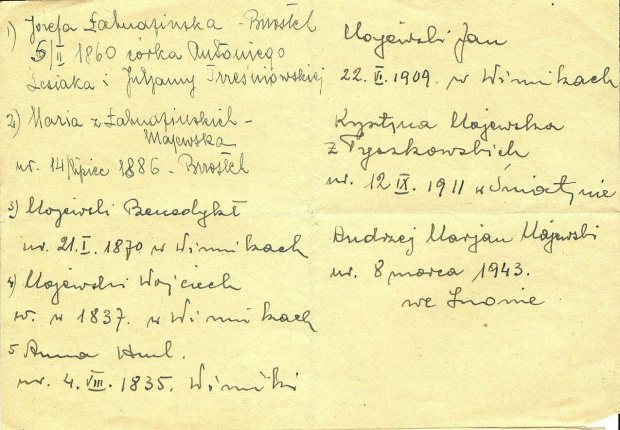 1) Józefa Łakuzińska - Brostek
5/II 1860 córka Antoniego
Lesiaka i Juljanny Treśniowskiej
2) Maria z Łakuzińskich -
Majewska
ur. 14/lipiec 1886 - Brostek
3) Majewski Benedykt
ur. 21.I. 1870 w Winnikach
4) Majewski Wojciech
ur. w 1837. w Winnikach
5 Anna
ur. 4. VIII. 1835. Winniki
Majewski Jan
1909. w Winnikach
Krystyna Majewska
z Tyszkowskich
ur. 12 IX. 1911 w Śniatynie
Andrzej Marjan Majewski
ur. 8 marca 1943.
we Lwowie